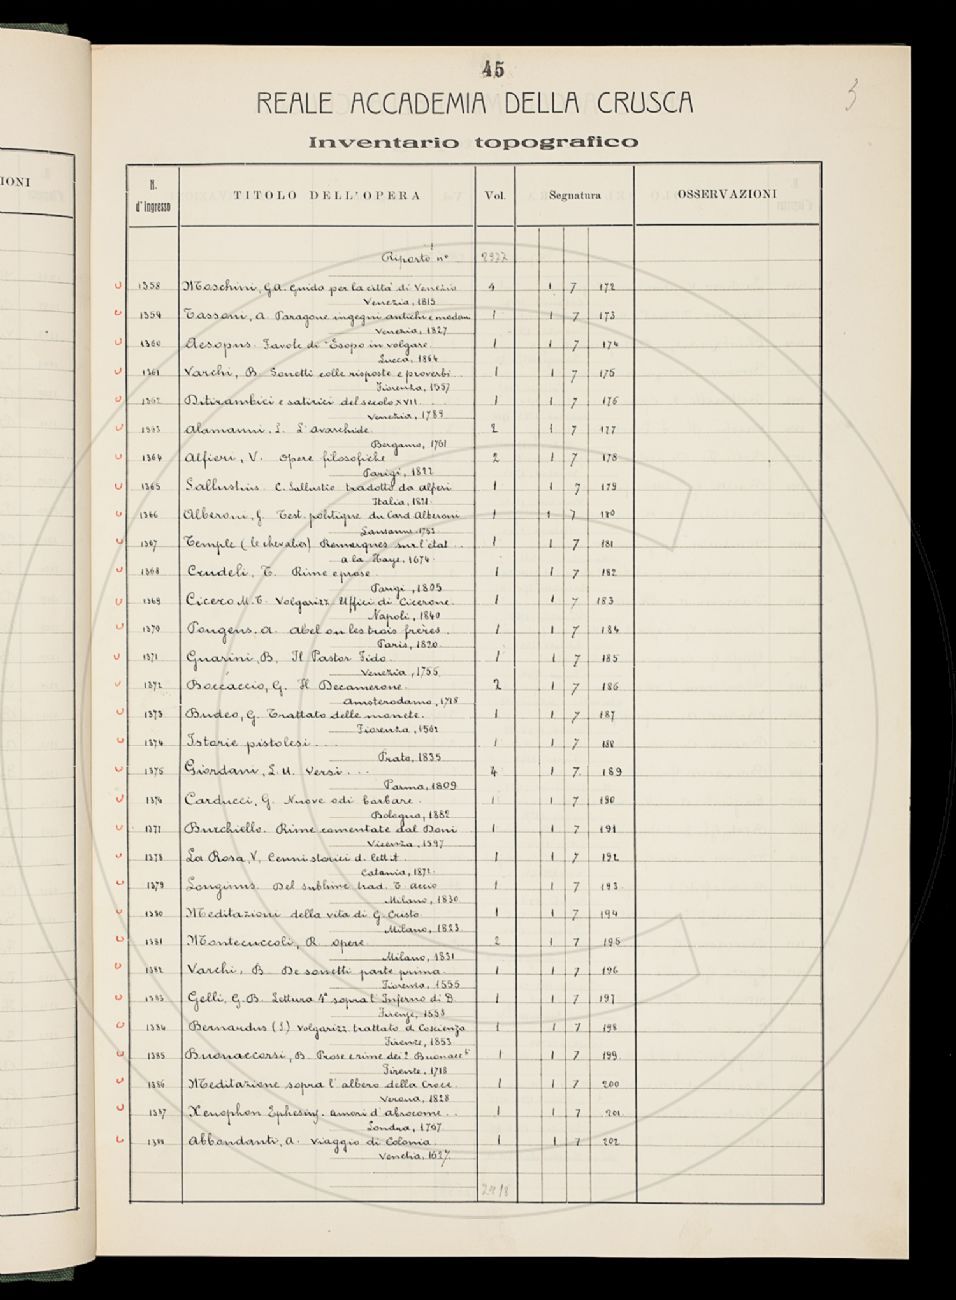 IONI
45
3
REALE ACCADEMIA DELLA CRUSCA
Inventario topografico
N. d'Ingresso TITOLO DELL'OPERA Vol. Segnatura OSSERVAZIONI
Riporto nº
1358 Moschini, G.A. Guida per la città di Venezia 4 1 7 172
Venezia, 1815
1359 Tassoni, A. Paragone ingegni antichi e moderni 1 1 7 173
Venezia, 1827
1360 Aesopus. Favole di Esopo in volgare 1 1 7 174
Lucca, 1864
1361 Varchi, B. Sonetti colle risposte e proverbi 1 1 7 175
Fiorenza, 1557
1362 Ditirambici e satirici del secolo XVII. 1 1 7 176
Venezia, 1789
1363 Alamanni, L. L'avarchide. 2 1 7 177
Bergamo, 1761
1364 Alfieri, V. Opere filosofiche 2 1 7 178
Parigi, 1822
1365 Sallustius. C. Sallustio tradotto da Alfieri 1 1 7 179
Italia, 1821
1366 Alberoni, G. Test. politique du Card Alberoni 1 1 7 180
Lausanne 1753
1367 Temple (le chevalier) Remarques sur l'état .. 1 1 7 181
a la Haye, 1674.
1368 Crudeli, T. Rime e prose. 1 1 7 182
Parigi, 1805
1369 Cicero M.T. Volgarizz. Uffici di Cicerone. 1 1 7 183
Napoli, 1840
1370 Pougens. A. Abel ou les trois frères. 1 1 7 184
Paris, 1820.
1371 Guarini, B, Il Pastor Fido. 1 1 7 185
Venezia, 1755
1372 Boccaccio, G. Il Decamerone. 2 1 7 186
Amsterodamo, 1718
1373 Budeo, G. Trattato delle monete. 1 1 7 187
Fiorenza, 1562
1374 Istorie pistolesi ... 1 1 7 188
Prato, 1835
1375 Giordani, L.U. Versi ... 4 1 7 189
Parma, 1809
1376 Carducci, G. Nuove odi barbare. 1 1 7 190
Bologna, 1882
1377 Burchiello. Rime comentate dal Doni 1 1 7 191
Vicenza, 1597
1378 La Rosa, V, Cenni storici d. lett. 1 1 7 192
Catania, 1872.
1379 Longinus. Del sublime trad. T. Accio 1 1 7 193
Milano, 1830
1380 Meditazioni della vita di G. Cristo 1 1 7 194
Milano, 1823
1381 Montecuccoli, R. opere 2 1 7 195
Milano, 1831
1382 Varchi, B. De sonetti parte prima. 1 1 7 196
Fiorenza, 1555
1383 Gelli, G.B. Lettura 1ª sopra l'Inferno di D. 1 1 7 197
Firenze, 1553
1384 Bernardus (S.) Volgarizz. trattato d. Coscienza 1 1 7 198
Firenze, 1853
1385 Buonaccorsi, B. Prose e rime dei 2 Buonacc 1 1 7 199
Firenze, 1718
1386 Meditazione sopra l'albero della Croce. 1 1 7 200
Verona, 1828
1387 Xenophon Ephesius. Amori d'Abrocome .. 1 1 7 201
Londra, 1767
1388 Abbondanti, A. Viaggio di Colonia. 1 1 7 202
Venetia, 1627.